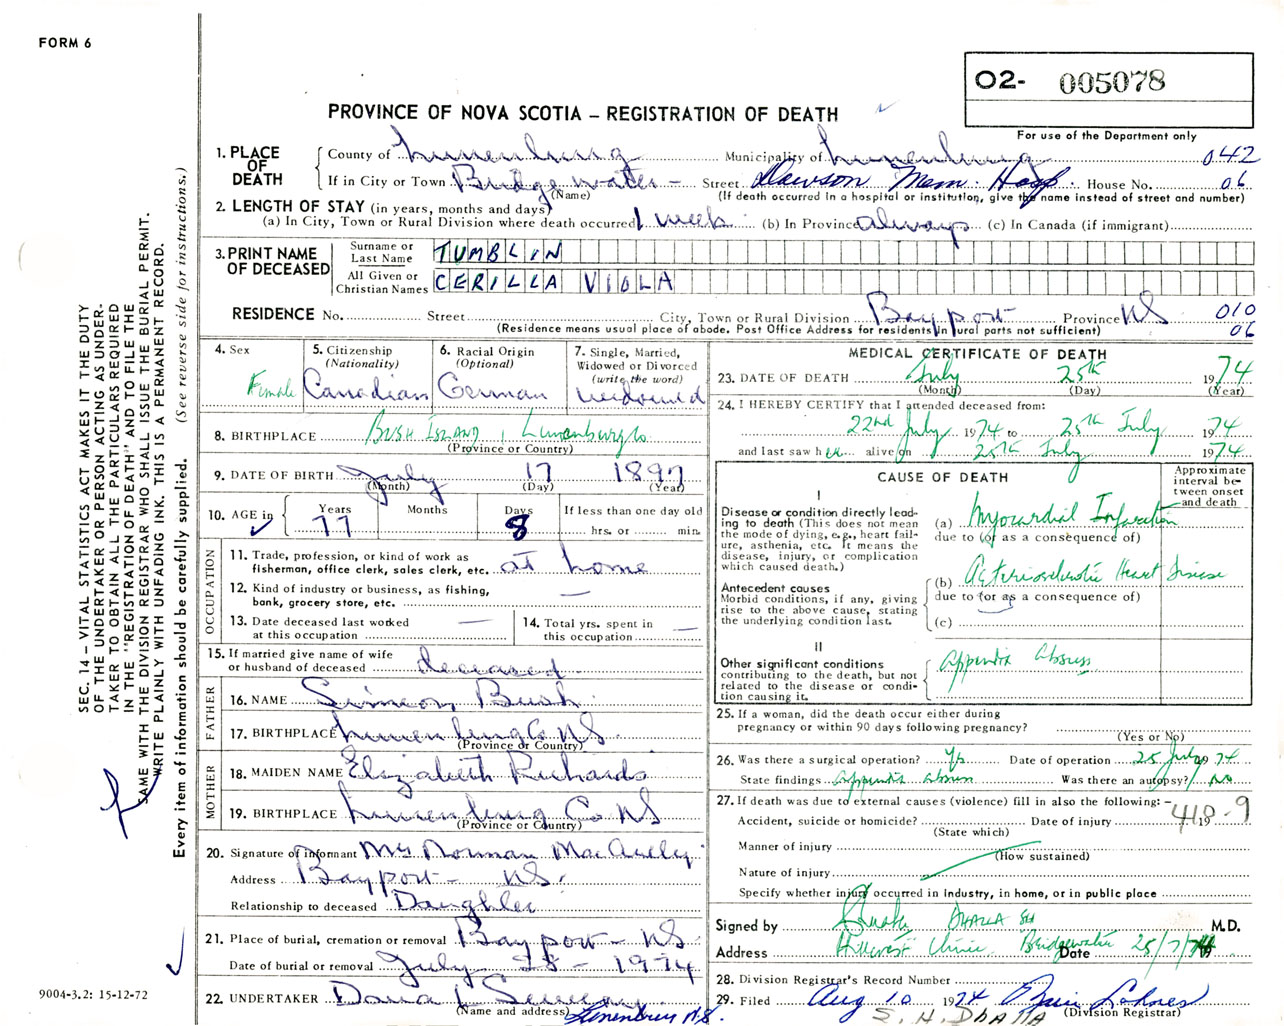 FORM 6
O2- 005078
For use of the Department only
PROVINCE OF NOVA SCOTIA – REGISTRATION OF DEATH
1. PLACE OF DEATH
County of Lunenburg Municipality of Lunenburg 042
If in City or Town Bridgewater - Street Dawson Mem. Hosp. House No. 06
(Name) (If death occurred in a hospital or institution, give the name instead of street and number)
2. LENGTH OF STAY (in years, months and days)
(a) In City, Town or Rural Division where death occurred 1 week (b) In Province always (c) In Canada (if immigrant)
3. PRINT NAME OF DECEASED
Surname or Last Name TUMBLIN
All Given or Christian Names CERILLA VIOLA
RESIDENCE No. Street City, Town or Rural Division Bayport Province NS 010
(Residence means usual place of abode. Post Office Address for residents in rural parts not sufficient) 06
4. Sex Female
5. Citizenship (Nationality) Canadian
6. Racial Origin (Optional) German
7. Single, Married, Widowed or Divorced (write the word) widowed
8. BIRTHPLACE BUSH ISLAND, Lunenburg Co
(Province or Country)
9. DATE OF BIRTH July 17 1897
(Month) (Day) (Year)
10. AGE in Years 77 Months Days 8 If less than one day old
hrs. or min.
OCCUPATION
11. Trade, profession, or kind of work as fisherman, office clerk, sales clerk, etc. at home
12. Kind of industry or business, as fishing, bank, grocery store, etc. —
13. Date deceased last worked at this occupation —
14. Total yrs. spent in this occupation —
15. If married give name of wife or husband of deceased deceased
FATHER
16. NAME Simeon Bush
17. BIRTHPLACE Lunenburg Co NS
(Province or Country)
MOTHER
18. MAIDEN NAME Elizabeth Richards
19. BIRTHPLACE Lunenburg Co NS
(Province or Country)
20. Signature of informant Mrs Norman
Address Bayport - NS.
Relationship to deceased Daughter
21. Place of burial, cremation or removal Bayport - NS
Date of burial or removal July 28 - 1974
22. UNDERTAKER Dana L Sweeny
(Name and address) Lunenburg N.S.
MEDICAL CERTIFICATE OF DEATH
23. DATE OF DEATH July 25th 1974
(Month) (Day) (Year)
24. I HEREBY CERTIFY that I attended deceased from:
22nd July 1974 to 25th July 1974
and last saw her alive on 25th July 1974
CAUSE OF DEATH
Approximate interval between onset and death
I
Disease or condition directly leading to death (This does not mean the mode of dying, e.g., heart failure, asthenia, etc. It means the disease, injury, or complication which caused death.)
(a) Myocardial Infarction
due to (or as a consequence of)
Antecedent causes
Morbid conditions, if any, giving rise to the above cause, stating the underlying condition last.
(b) Arteriosclerotic Heart Disease
due to (or as a consequence of)
(c)
II
Other significant conditions contributing to the death, but not related to the disease or condition causing it.
Appendix Abscess
25. If a woman, did the death occur either during pregnancy or within 90 days following pregnancy?
(Yes or No)
26. Was there a surgical operation? Yes Date of operation 25 July 1974
State findings Appendix abscess Was there an autopsy? No
27. If death was due to external causes (violence) fill in also the following: -
Accident, suicide or homicide? Date of injury 19 410-9
(State which)
Manner of injury
(How sustained)
Nature of injury
Specify whether injury occurred in industry, in home, or in public place
Signed by DHALLA SH M.D.
Address Hillcrest Clinic Bridgewater Date 25/7/74 19
28. Division Registrar's Record Number
29. Filed Aug 10 1974
(Division Registrar)
S. H. Dhalla
SEC. 14 – VITAL STATISTICS ACT MAKES IT THE DUTY
OF THE UNDERTAKER OR PERSON ACTING AS UNDER-
TAKER TO OBTAIN ALL THE PARTICULARS REQUIRED
IN THE "REGISTRATION OF DEATH" AND TO FILE THE
SAME WITH THE DIVISION REGISTRAR WHO SHALL ISSUE THE BURIAL PERMIT.
WRITE PLAINLY WITH UNFADING INK. THIS IS A PERMANENT RECORD.
Every item of information should be carefully supplied. (See reverse side for instructions.)
9004-3.2: 15-12-72